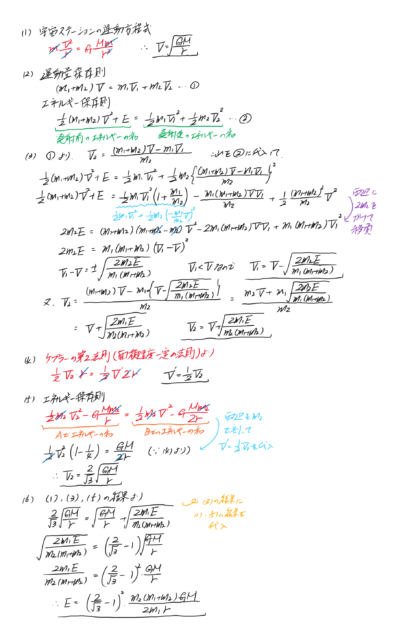 (1) 宇宙ステーションの運動方程式
m V²/r = G Mm/r² ∴ V = √(GM/r)
(2) 運動量保存則
(m₁+m₂)V = m₁V₁ + m₂V₂ …①
エネルギー保存則
1/2(m₁+m₂)V² + E = 1/2 m₁V₁² + 1/2 m₂V₂² …②
(3) ①より V₂ = ((m₁+m₂)V − m₁V₁)/m₂ これを②に代入して、
1/2(m₁+m₂)V² + E = 1/2 m₁V₁² + 1/2 m₂{((m₁+m₂)V − m₁V₁)/m₂}²
1/2(m₁+m₂)V² + E = 1/2 m₁V₁²(1 + m₁/m₂) − m₁(m₁+m₂)VV₁/m₂ + 1/2 (m₁+m₂)²/m₂ V²
2m₂E = (m₁+m₂)(m₁+m₂−m₂)V² − 2m₁(m₁+m₂)VV₁ + m₁(m₁+m₂)V₁²
2m₂E = m₁(m₁+m₂)(V₁−V)²
V₁−V = ±√(2m₂E/(m₁(m₁+m₂))) V₁<Vなので V₁ = V − √(2m₂E/(m₁(m₁+m₂)))
又、V₂ = ((m₁+m₂)V − m₁{V − √(2m₂E/(m₁(m₁+m₂)))})/m₂ = (m₂V + m₁√(2m₂E/(m₁(m₁+m₂))))/m₂
= V + √(2m₁E/(m₂(m₁+m₂))) V₂ = V + √(2m₁E/(m₂(m₁+m₂)))
(4) ケプラーの第2法則(面積速度一定の法則)より
1/2 V₂ r = 1/2 V' 2r V' = 1/2 V₂
(5) エネルギー保存則
1/2 m₂V₂² − G Mm₂/r = 1/2 m₂V'² − G Mm₂/2r
1/2 V₂²(1 − 1/4) = GM/2r (∵(4)より)
∴ V₂ = 2/√3 √(GM/r)
(6) (1), (3), (5)の結果より
2/√3 √(GM/r) = √(GM/r) + √(2m₁E/(m₂(m₁+m₂)))
√(2m₁E/(m₂(m₁+m₂))) = (2/√3 − 1)√(GM/r)
2m₁E/(m₂(m₁+m₂)) = (2/√3 − 1)² GM/r
∴ E = (2/√3 − 1)² m₂(m₁+m₂)GM/2m₁r